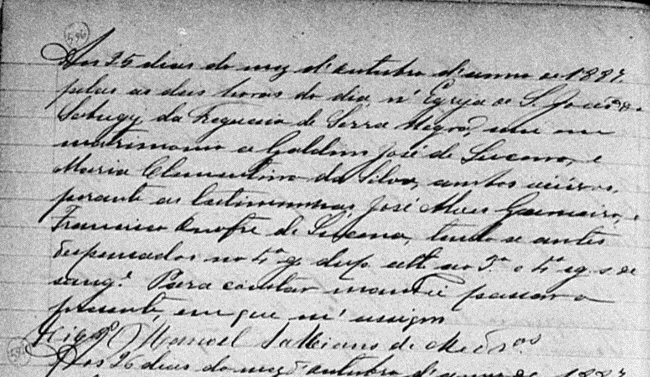 596
Aos 25 dias do mez d'outubro d'anno de 1887
pelas as des horas do dia, n' Egreja de S. João do
Sabugy, da Freguesia de Serra Negra, une em
matrimonio a Galdino José de Lucena, e
Maria Clementina da Silva, ambos
perante as testimunhas José Alves Gameiro, e
Francisco Onofre de Lucena, tendo se antes
dispensados no 4º g. dup. att. no 3º e 4º eg. s de
sang.º Para constar mandei passar o
presente, em que m' assigno
Manoel Salviano de Medrºs
Aos 26 dias do mez d'outubro d'anno de 1887